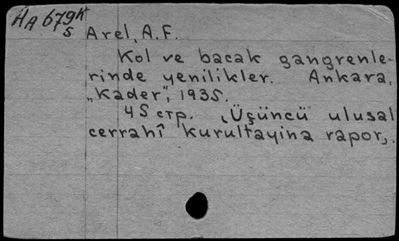 HA 679к
5
Arel, A.F.
Kol ve bacak gangrenle-
rinde yenilikler. Ankara,
„Kader", 1935.
45 стр. (Üçüncü ulusal
cerrahî kurultayina rapor).